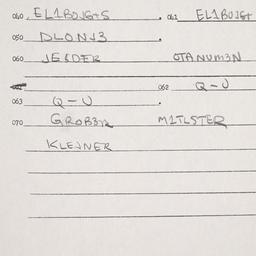 040 EL1BOJGTS . 041 EL1BOJGT
050 DLONJ3 .
060 JE6DER OTANUM3N
062 Q-U
063 Q-U .
070 GROB3R M1TLSTER
KLEJNER